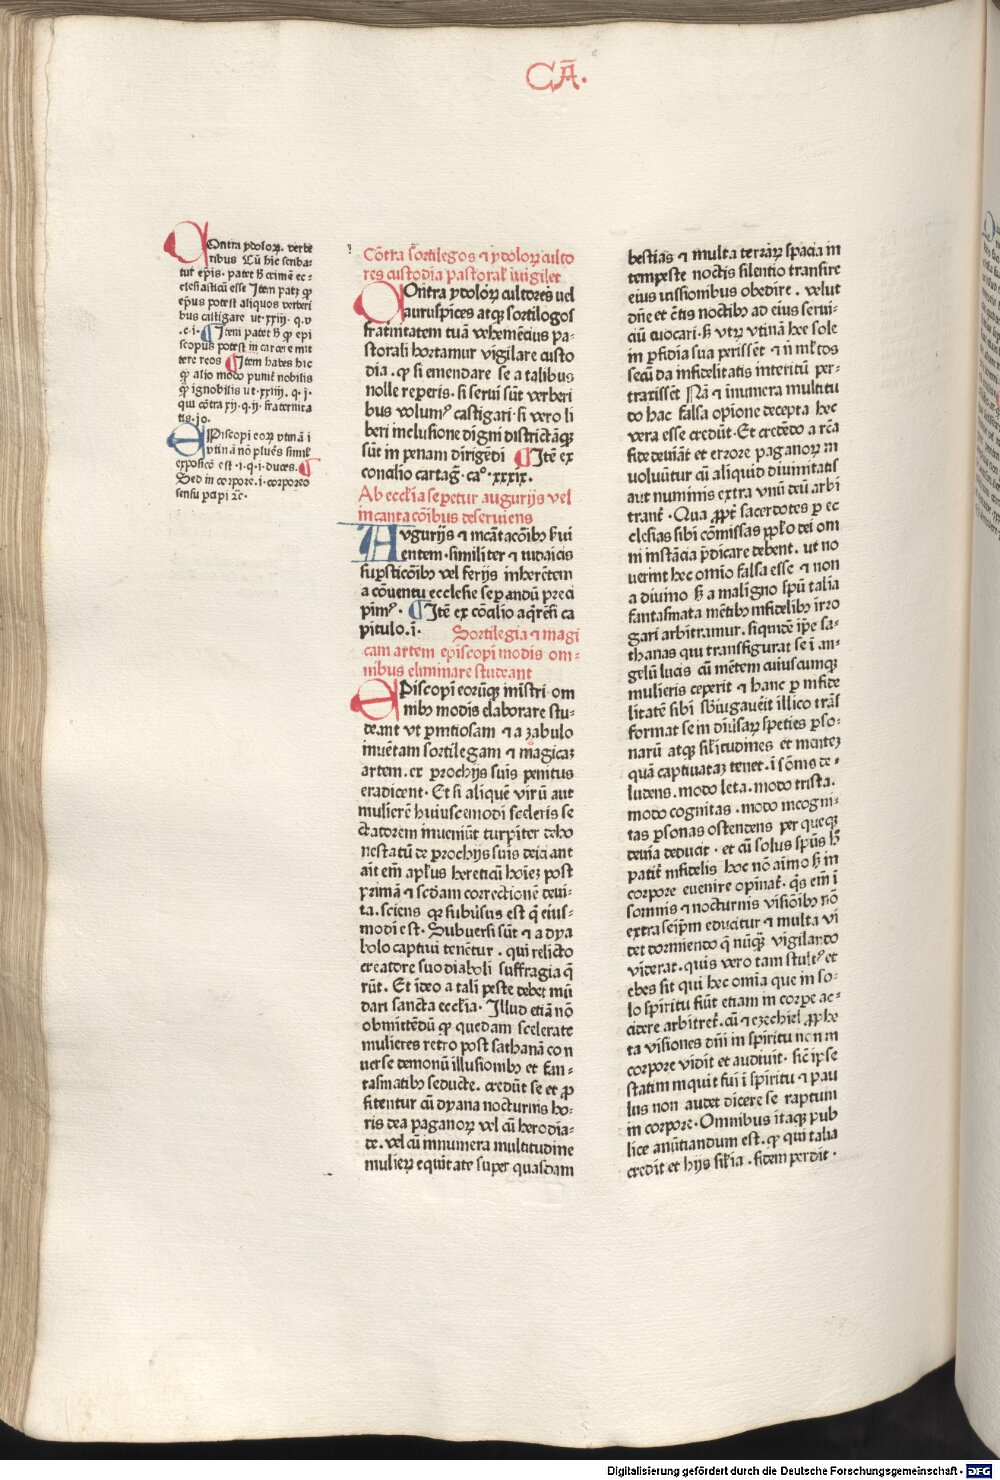 CĀ.
Ontra ydoloꝝ. verbe
ribus Cū hic scriba-
tur epis. patet ꝙ crimē ec-
clesiasticū esse Item patꝫ ꝙ
ep̄us potest aliquos verberi
bus castigare ut. xxiij. q. v
.c. i. ¶ Item patet ꝙ epi
scopus potest in carcere mit
tere reos ¶ Item habes hic
ꝙ alio modo punit̄ nobilis
ꝙ ignobilis ut. xxiiij. q. j.
qui cōtra xij. q. ij. fraternita
tis. jo.
EPiscopi eoꝝ vtinā i
vtinā nō plues simil
expositio est. i. q. i. duces. ¶
Sed in corpore. i. corporeo
sensu papi ⁊c.
Cōtra sortilegos ⁊ ydoloꝝ culto
res custodia pastoral' iuigilet
COntra ydolōꝝ cultores uel
auruspices atqꝫ sortilogos
fratnitatem tuā vehemēcius pa-
storali hortamur vigilare custo
dia. ꝙ si emendare se a talibus
nolle reperis. si serui sūt verberi
bus volum⁹ castigari. si vero li
beri inclusione digni districtaqꝫ
sūt in penam dirigēdi ¶ Itē ex
concilio cartag̃. ca°. xxxix.
Ab ecclīa sepetur augurijs vel
incantacōibus deseruiens
AVgurijs ⁊ incātacōibꝫ ẜui
entem. similiter ⁊ iudaicis
suꝑsticōibꝫ vel ferijs inherētem
a cōuentu ecclesie seperandū preci
pim⁹. ¶ Itē ex cōcilio aq̄rēsi ca
pitulo. i.
Sortilegia ⁊ magi
cam artem episcopi modis om-
nibus eliminare studeant
EPiscopi eorūqꝫ mīstri om
nibꝫ modis elaborare stu-
deant vt ꝑnitiosam ⁊ a zabulo
inuētam sortilegam ⁊ magicaꝫ
artem. ex prochijs suis penitus
eradicent. Et si aliquē virū aut
mulierē huiuscemodi sceleris se
ctatorem inueniūt turpiter deho
nestatū de prochijs suis deiciant
ait em̄ apl'us hereticū hoīeꝫ post
primā ⁊ scdam correctionē deui-
ta. sciens qꝛ subūsus est q̄ eius-
modi est. Subuersi sūt ⁊ a dya
bolo captiui tenētur. qui relicto
creatore suo diaboli suffragia q̄
rūt. Et ideo a tali peste debet mū
dari sancta ecclīa. Illud etiā nō
obmittēdū ꝙ quedam scelerate
mulieres retro post sathanā con
uerse demonū illusionibꝫ et fan-
tasmatibꝫ seducte. credūt se et ꝓ
fitentur cū dyana nocturnis ho-
ris dea paganoꝝ vel cū herodia-
de. vel cū innumera multitudine
mulieꝝ equitate super quasdam
bestias ⁊ multa terraꝝ spacia in
tempeste noctis silentio transire
eius iussionibus obedire. velut
dn̄e et c̄tis noctibꝫ ad eius serui-
ciū euocari. ꝫ utꝫ vtinā hee sole
in ꝑfidia sua perissēt ⁊ n̄ ml'tos
secū da infidelitatis interitū per-
traxissēt Nā ⁊ inumera multitu
do hac falsa opione decepta hec
vera esse credūt. Et credēdo a rēa
fide deuiāt et errore paganoꝝ in
voluūtur cū aliquid diuinitatis
aut numinis extra vnū deū arbi
trant̄. Qua ꝓpt̄ sacerdotes ꝑ ec
clesias sibi cōmissas ppl'o dei om
ni instācia p̄dicare debent. ut no
uerint hec omīo falsa esse ⁊ non
a diuino ꝫ a maligno spū talia
fantasmata mētibꝫ infidelibꝫ irro
gari arbitramur. siquidē ip̄e sa-
thanas qui transfigurat se ī an-
gelū lucis cū mētem cuiuscumqꝫ
mulieris ceperit ⁊ hanc ꝑ infide
litatē sibi sb̄iugauerit illico trās
format se in diūsaꝝ speties ꝑso-
narū atqꝫ sil'itudines et menteꝫ
quā captiuataꝫ tenet. ī sōnis de-
ludens. modo leta. modo trista.
modo cognitas. modo incogni-
tas ꝑsonas ostendens per queqꝫ
deuia deducit. et cū solus spūs h°
patit̄ infidelis hoc nō aīmo ꝫ in
corpore euenire opinat̄. q̄s em̄ ī
somnis ⁊ nocturnis visiōibꝫ nō
extra seip̄m educitur ⁊ multa vi
det dormiendo q̄ nūqꝫ vigilando
viderat. quis vero tam stult⁹ et
ebes sit qui hec omīa que in so-
lo spiritu fiūt etiam in corpe ac-
cidere arbitret̄. cū ⁊ ezechiel ꝓphe
ta visiones dn̄i in spiritu non in
corpore vidit et audiuit. sic ip̄se
statim inquit fui ī spiritu ⁊ pau
lus non audet dicere se raptum
in corpore. Omnibus itaqꝫ pub
lice anūtiandum est. ꝙ qui talia
credit et hijs sil'ia. fidem perdit.
Digitalisierung gefördert durch die Deutsche Forschungsgemeinschaft - DFG